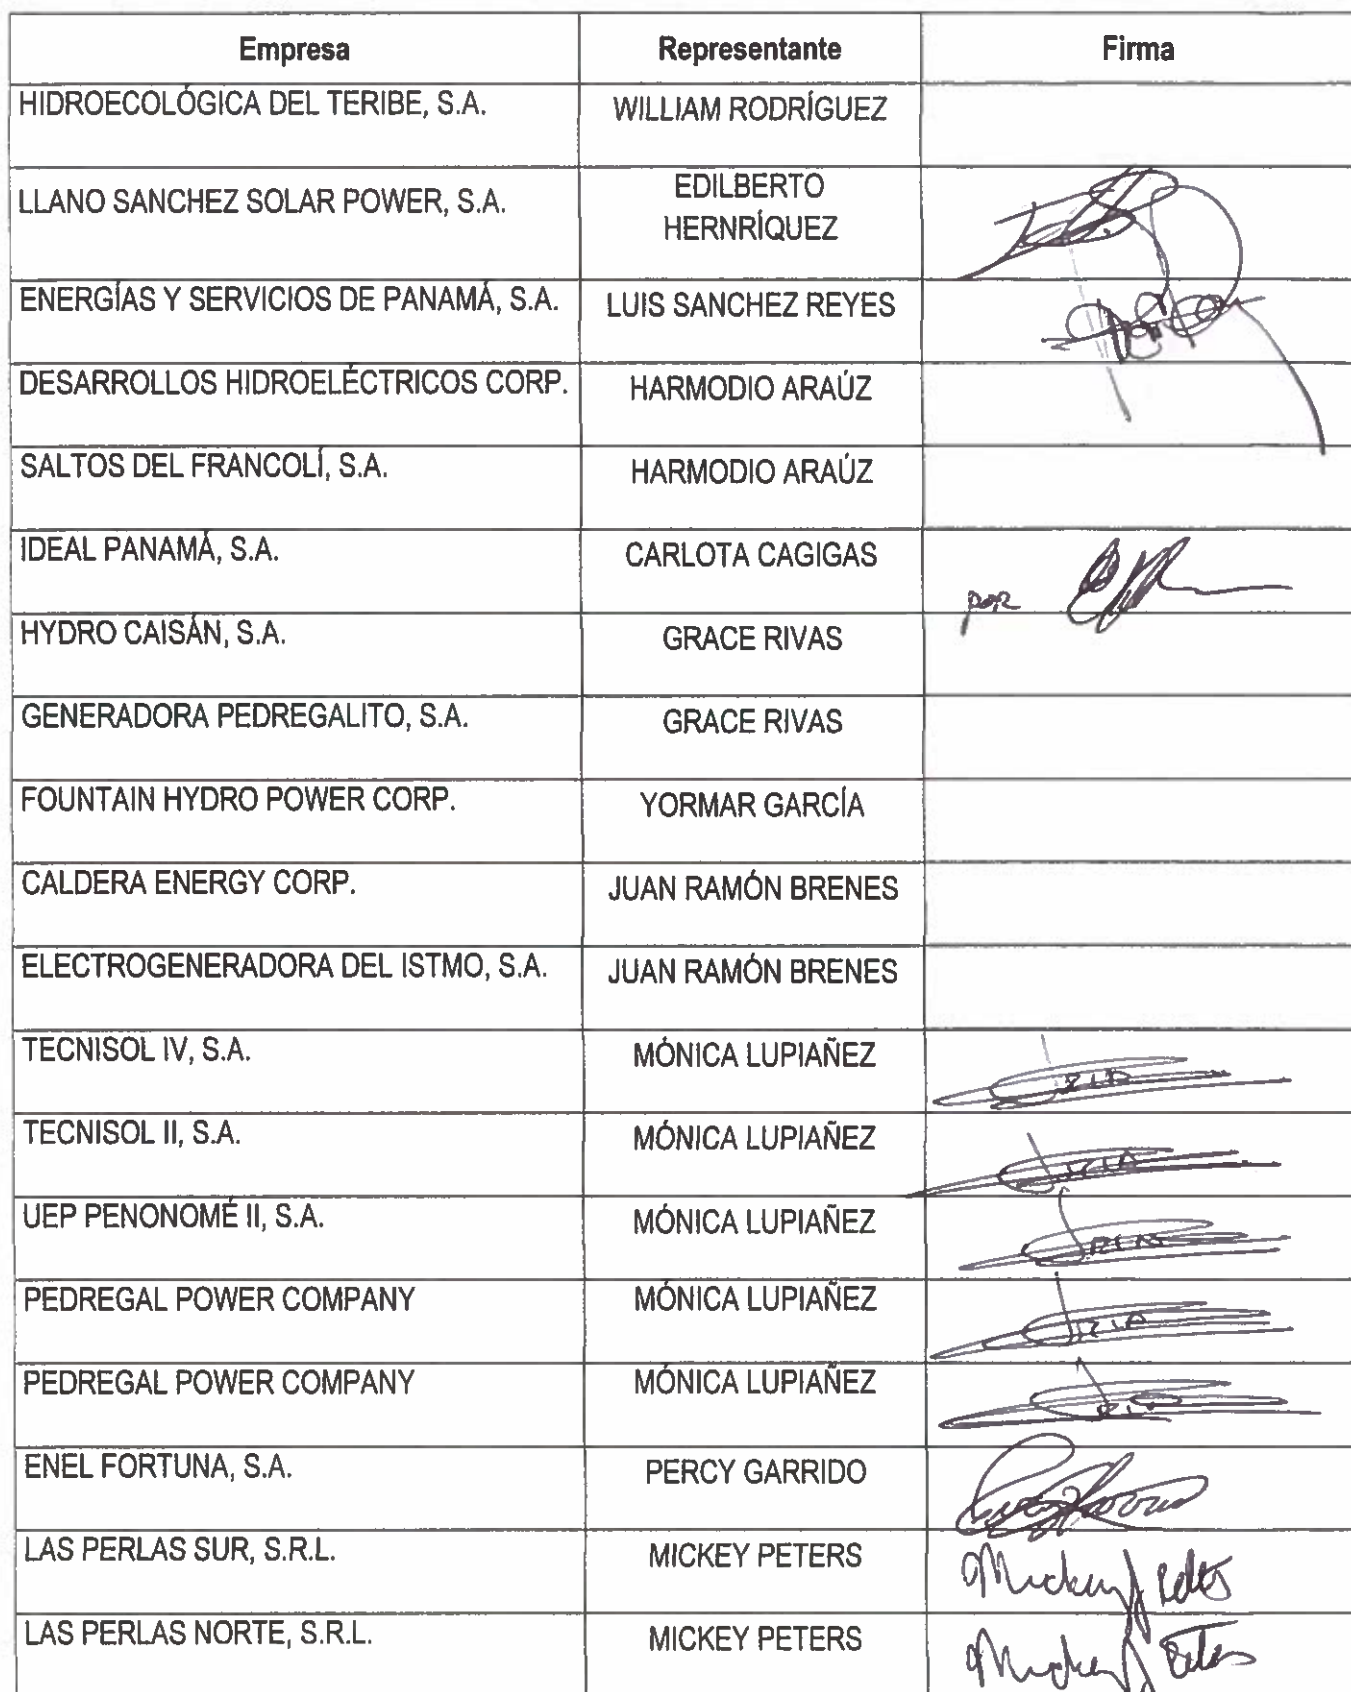 Empresa Representante Firma
HIDROECOLÓGICA DEL TERIBE, S.A. WILLIAM RODRÍGUEZ
LLANO SANCHEZ SOLAR POWER, S.A. EDILBERTO
HERNRÍQUEZ
ENERGÍAS Y SERVICIOS DE PANAMÁ, S.A. LUIS SANCHEZ REYES
DESARROLLOS HIDROELÉCTRICOS CORP. HARMODIO ARAÚZ
SALTOS DEL FRANCOLÍ, S.A. HARMODIO ARAÚZ
IDEAL PANAMÁ, S.A. CARLOTA CAGIGAS por
HYDRO CAISÁN, S.A. GRACE RIVAS
GENERADORA PEDREGALITO, S.A. GRACE RIVAS
FOUNTAIN HYDRO POWER CORP. YORMAR GARCÍA
CALDERA ENERGY CORP. JUAN RAMÓN BRENES
ELECTROGENERADORA DEL ISTMO, S.A. JUAN RAMÓN BRENES
TECNISOL IV, S.A. MÓNICA LUPIAÑEZ
TECNISOL II, S.A. MÓNICA LUPIAÑEZ
UEP PENONOMÉ II, S.A. MÓNICA LUPIAÑEZ
PEDREGAL POWER COMPANY MÓNICA LUPIAÑEZ
PEDREGAL POWER COMPANY MÓNICA LUPIAÑEZ
ENEL FORTUNA, S.A. PERCY GARRIDO
LAS PERLAS SUR, S.R.L. MICKEY PETERS Mickey J Peters
LAS PERLAS NORTE, S.R.L. MICKEY PETERS Mickey J Peters